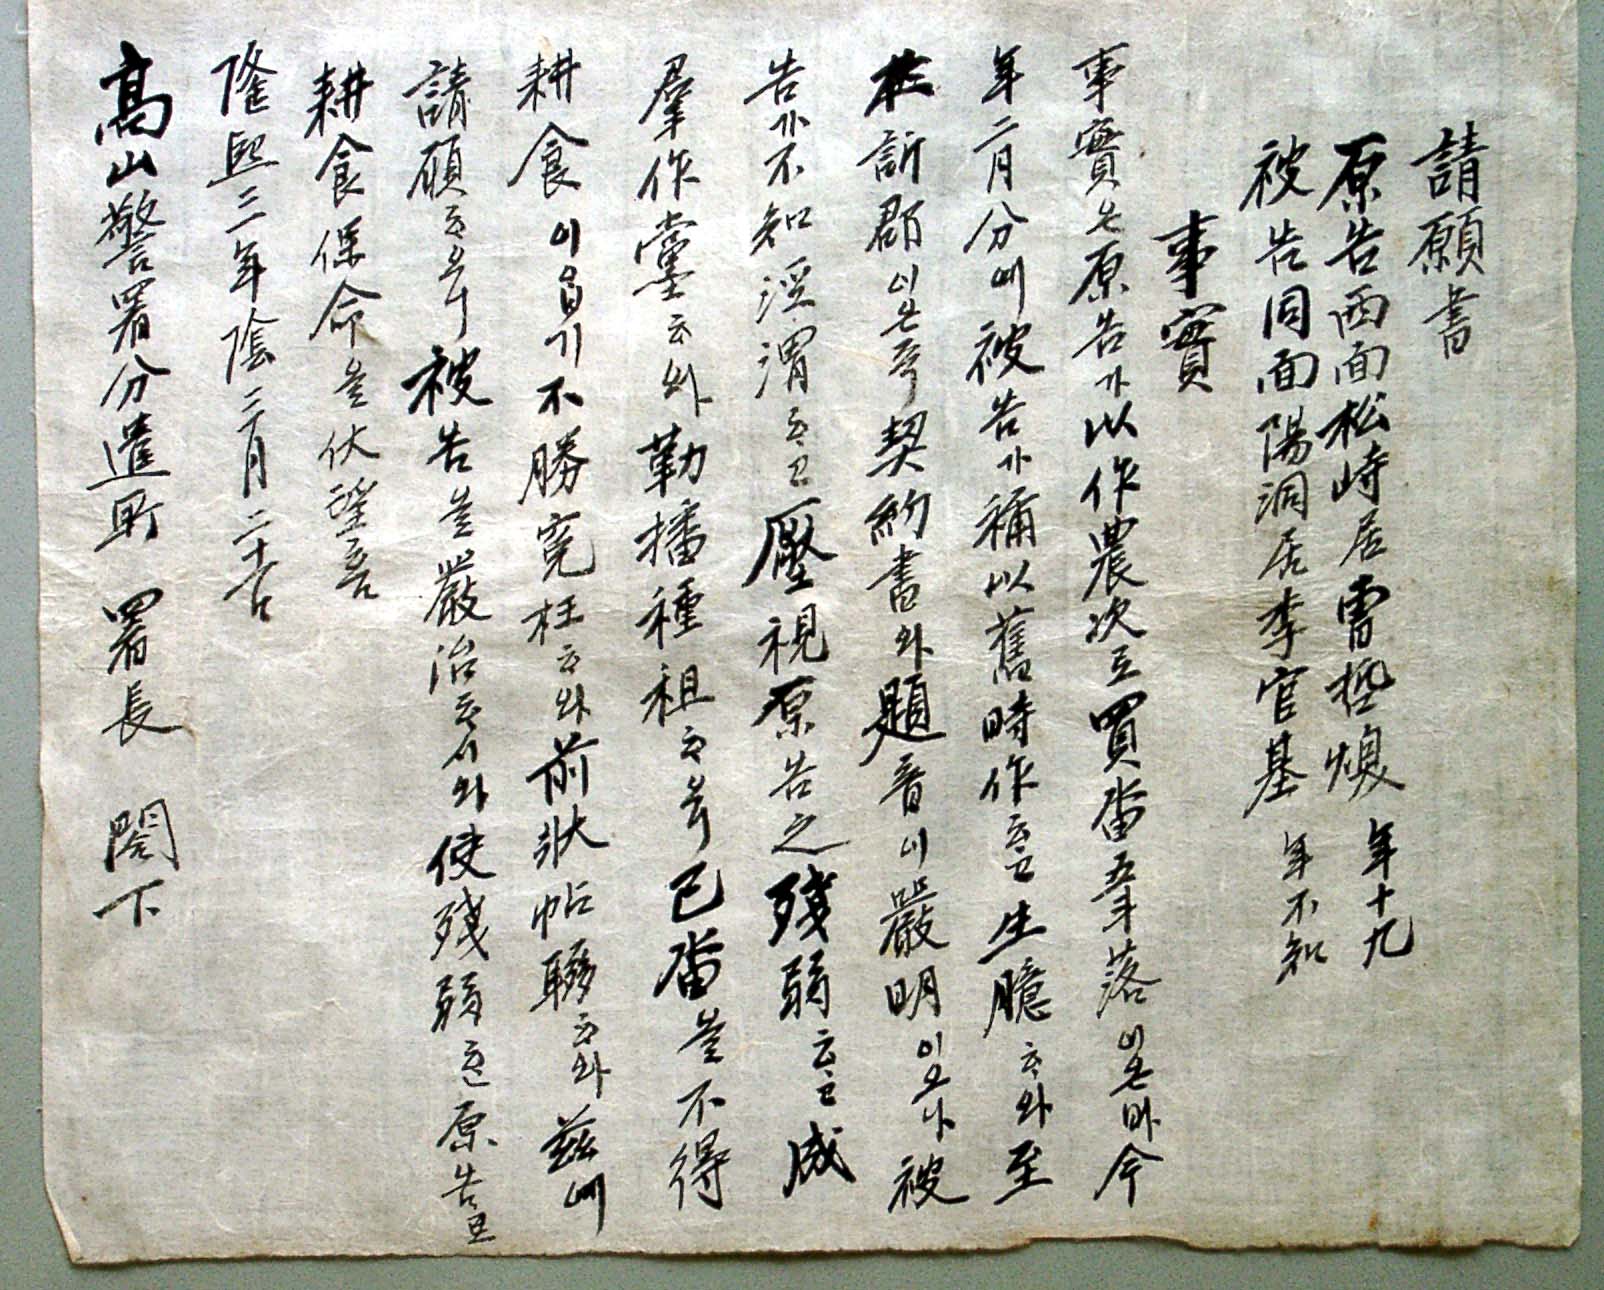 請願書
原告西面松崎居曺哲煥 年十九
被告同面陽洞居李官基 年不知
事實
事實은原告가以作農次로買畓五斗落이온바今
年二月分에被告가稱以舊時作하고生臆하와至
於訴郡이온즉契約書와題音이嚴明이오나被
告가不知涇渭하고壓視原告之殘弱하고成
羣作黨하와勒播種租하온즉己畓을不得
耕食이옵기不勝寃枉하와前狀帖聯하와玆에
請願하오니被告을嚴治하시와使殘弱한原告로
耕食保命을伏望홈
隆熙三年陰三月二十六日
高山警署分遣所 署長 閤下